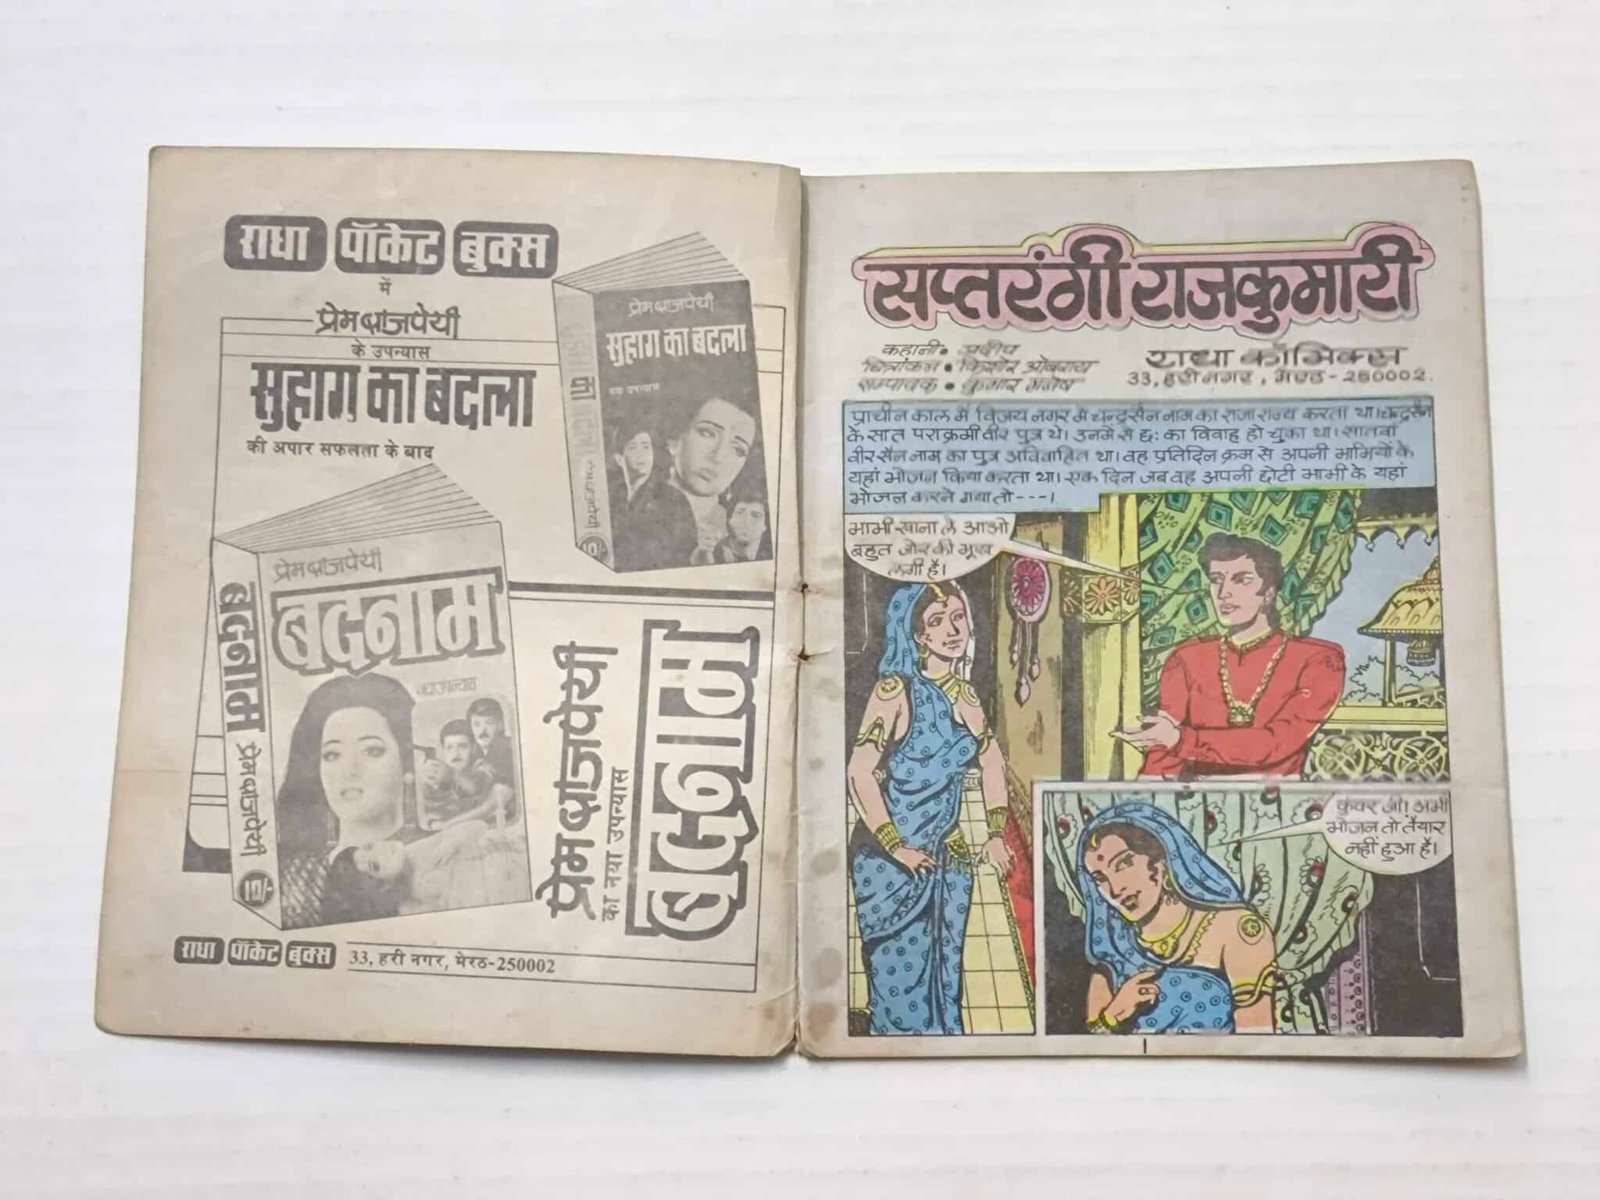 राधा पॉकेट बुक्स
में
प्रेम बाजपेयी
के उपन्यास
सुहाग का बदला
की अपार सफलता के बाद
प्रेम बाजपेयी
सुहाग का बदला
नया उपन्यास
सुहाग का बदला
प्रेम बाजपेयी
10/-
प्रेम बाजपेयी
बदनाम
नया उपन्यास
बदनाम
प्रेम बाजपेयी
10/-
प्रेम बाजपेयी
का नया उपन्यास
बदनाम
राधा पॉकेट बुक्स 33, हरी नगर, मेरठ-250002
सप्तरंगी राजकुमारी
कहानी• प्रदीप
चित्रांकन• किशोर ओबराय
सम्पादक• कुमार मनेष
राधा कॉमिक्स
33, हरी नगर, मेरठ-250002.
प्राचीन काल में विजय नगर में चन्द्रसैन नाम का राजा राज्य करता था। चन्द्रसैन
के सात पराक्रमी वीर पुत्र थे। उनमें से छ: का विवाह हो चुका था। सातवां
वीरसैन नाम का पुत्र अविवाहित था। वह प्रतिदिन क्रम से अपनी भाभियों के
यहां भोजन किया करता था। एक दिन जब वह अपनी छोटी भाभी के यहां
भोजन करने गया तो ---।
भाभी खाना ले आओ
बहुत जोर की भूख
लगी है।
कुंवर जी! अभी
भोजन तो तैयार
नहीं हुआ है।
1